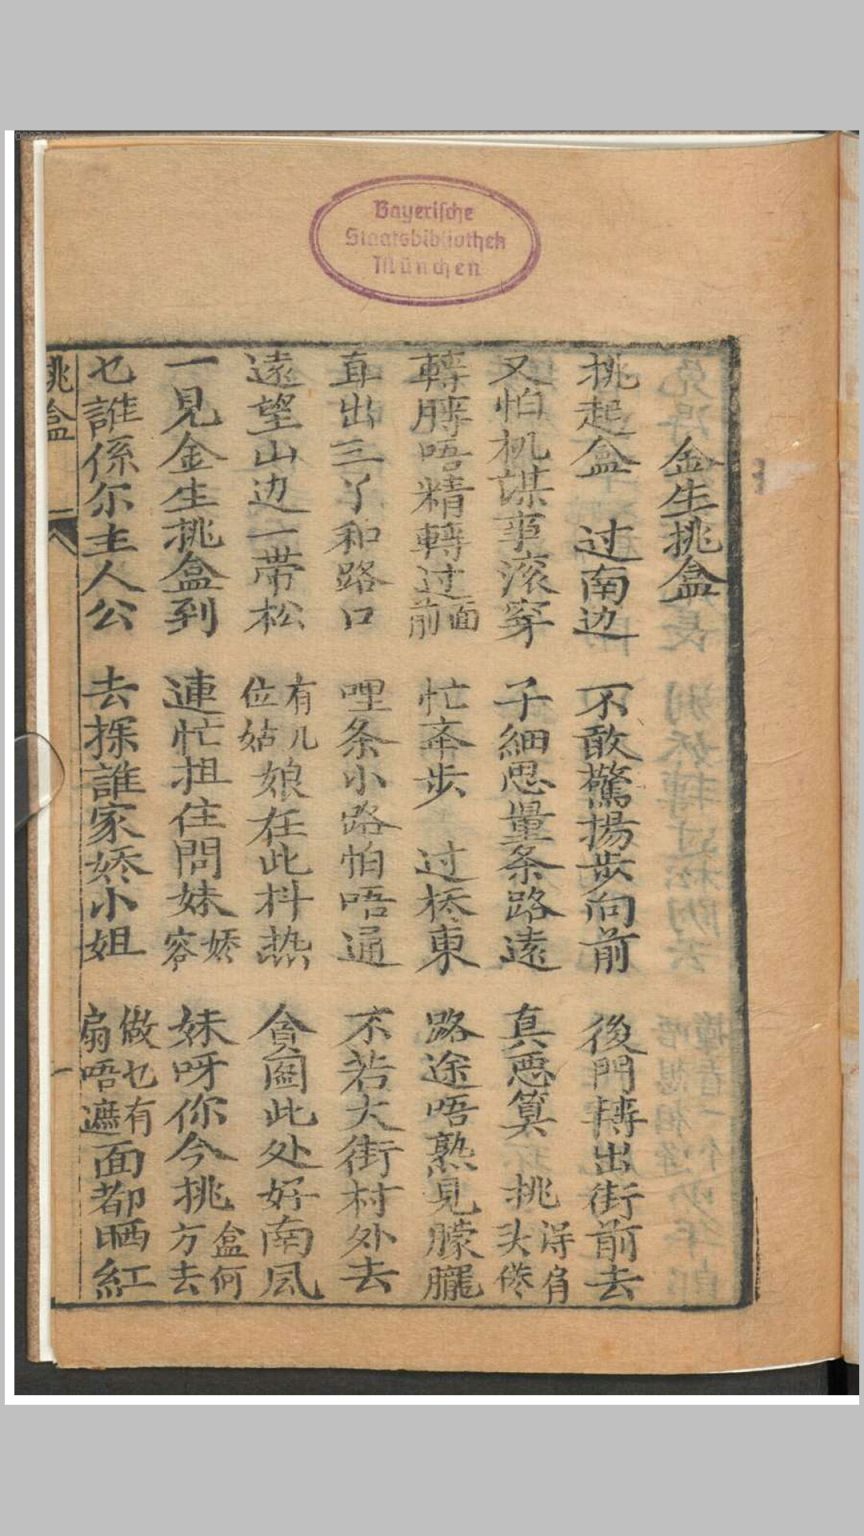 Bayerische
Staatsbibliothek
München
金生挑盒
挑起盒 过南边 不敢驚揚步向前 後門轉出街前去
又怕机謀事滚穿 子細思量条路遠 真悪算 挑得肩头倦
轉膊唔精轉过面前 忙奔步 过桥東 路途唔熟見朦朧
直出三丫和路口 哩条小路怕唔通 不若大街村外去
遠望山边一帶松 有几位姑娘在此抖热 貪圖此处好南风
一見金生挑盒到 連忙担住問妹娇容 妹呀你今挑盒何方去
乜誰係尔主人公 去探誰家娇小姐 做乜有扇唔遮面都晒紅
挑盒